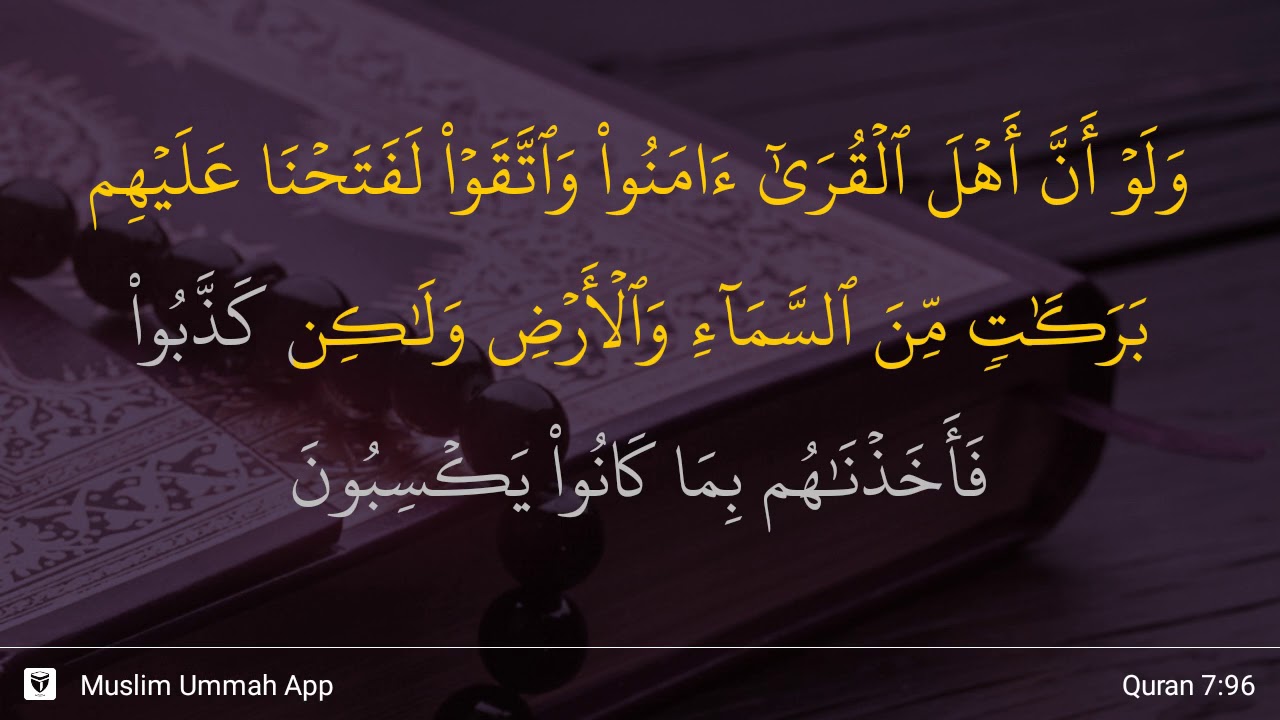 وَلَوۡ أَنَّ أَهۡلَ ٱلۡقُرَىٰٓ ءَامَنُواْ وَٱتَّقَوۡاْ لَفَتَحۡنَا عَلَيۡهِم
بَرَكَٰتٖ مِّنَ ٱلسَّمَآءِ وَٱلۡأَرۡضِ وَلَٰكِن كَذَّبُواْ
فَأَخَذۡنَٰهُم بِمَا كَانُواْ يَكۡسِبُونَ
Muslim Ummah App
Quran 7:96